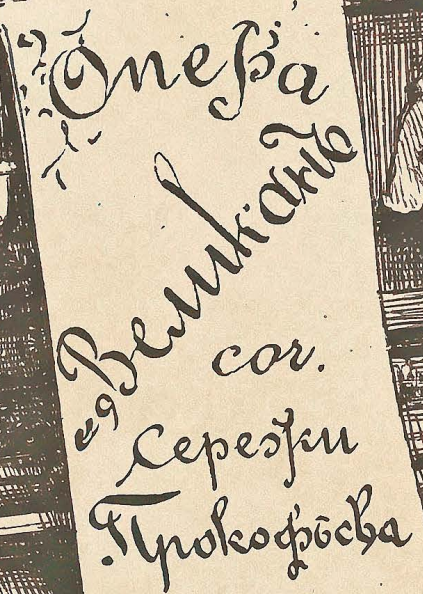 Опера
„Великанъ
соч.
Сережки
Прокофьева